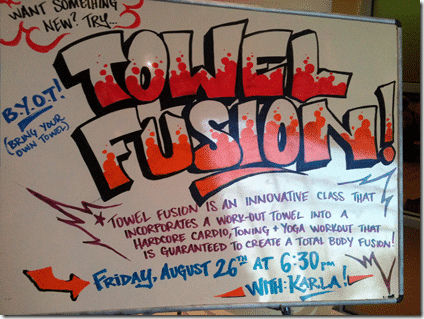 WANT SOMETHING
NEW? TRY...
TOWEL
FUSION!
B.Y.O.T!
(BRING YOUR
OWN TOWEL)
* TOWEL FUSION IS AN INNOVATIVE CLASS THAT
INCORPORATES A WORK-OUT TOWEL INTO A
HARDCORE CARDIO, TONING + YOGA WORKOUT THAT
IS GUARANTEED TO CREATE A TOTAL BODY FUSION!
FRIDAY, AUGUST 26TH AT 6:30pm
WITH KARLA!